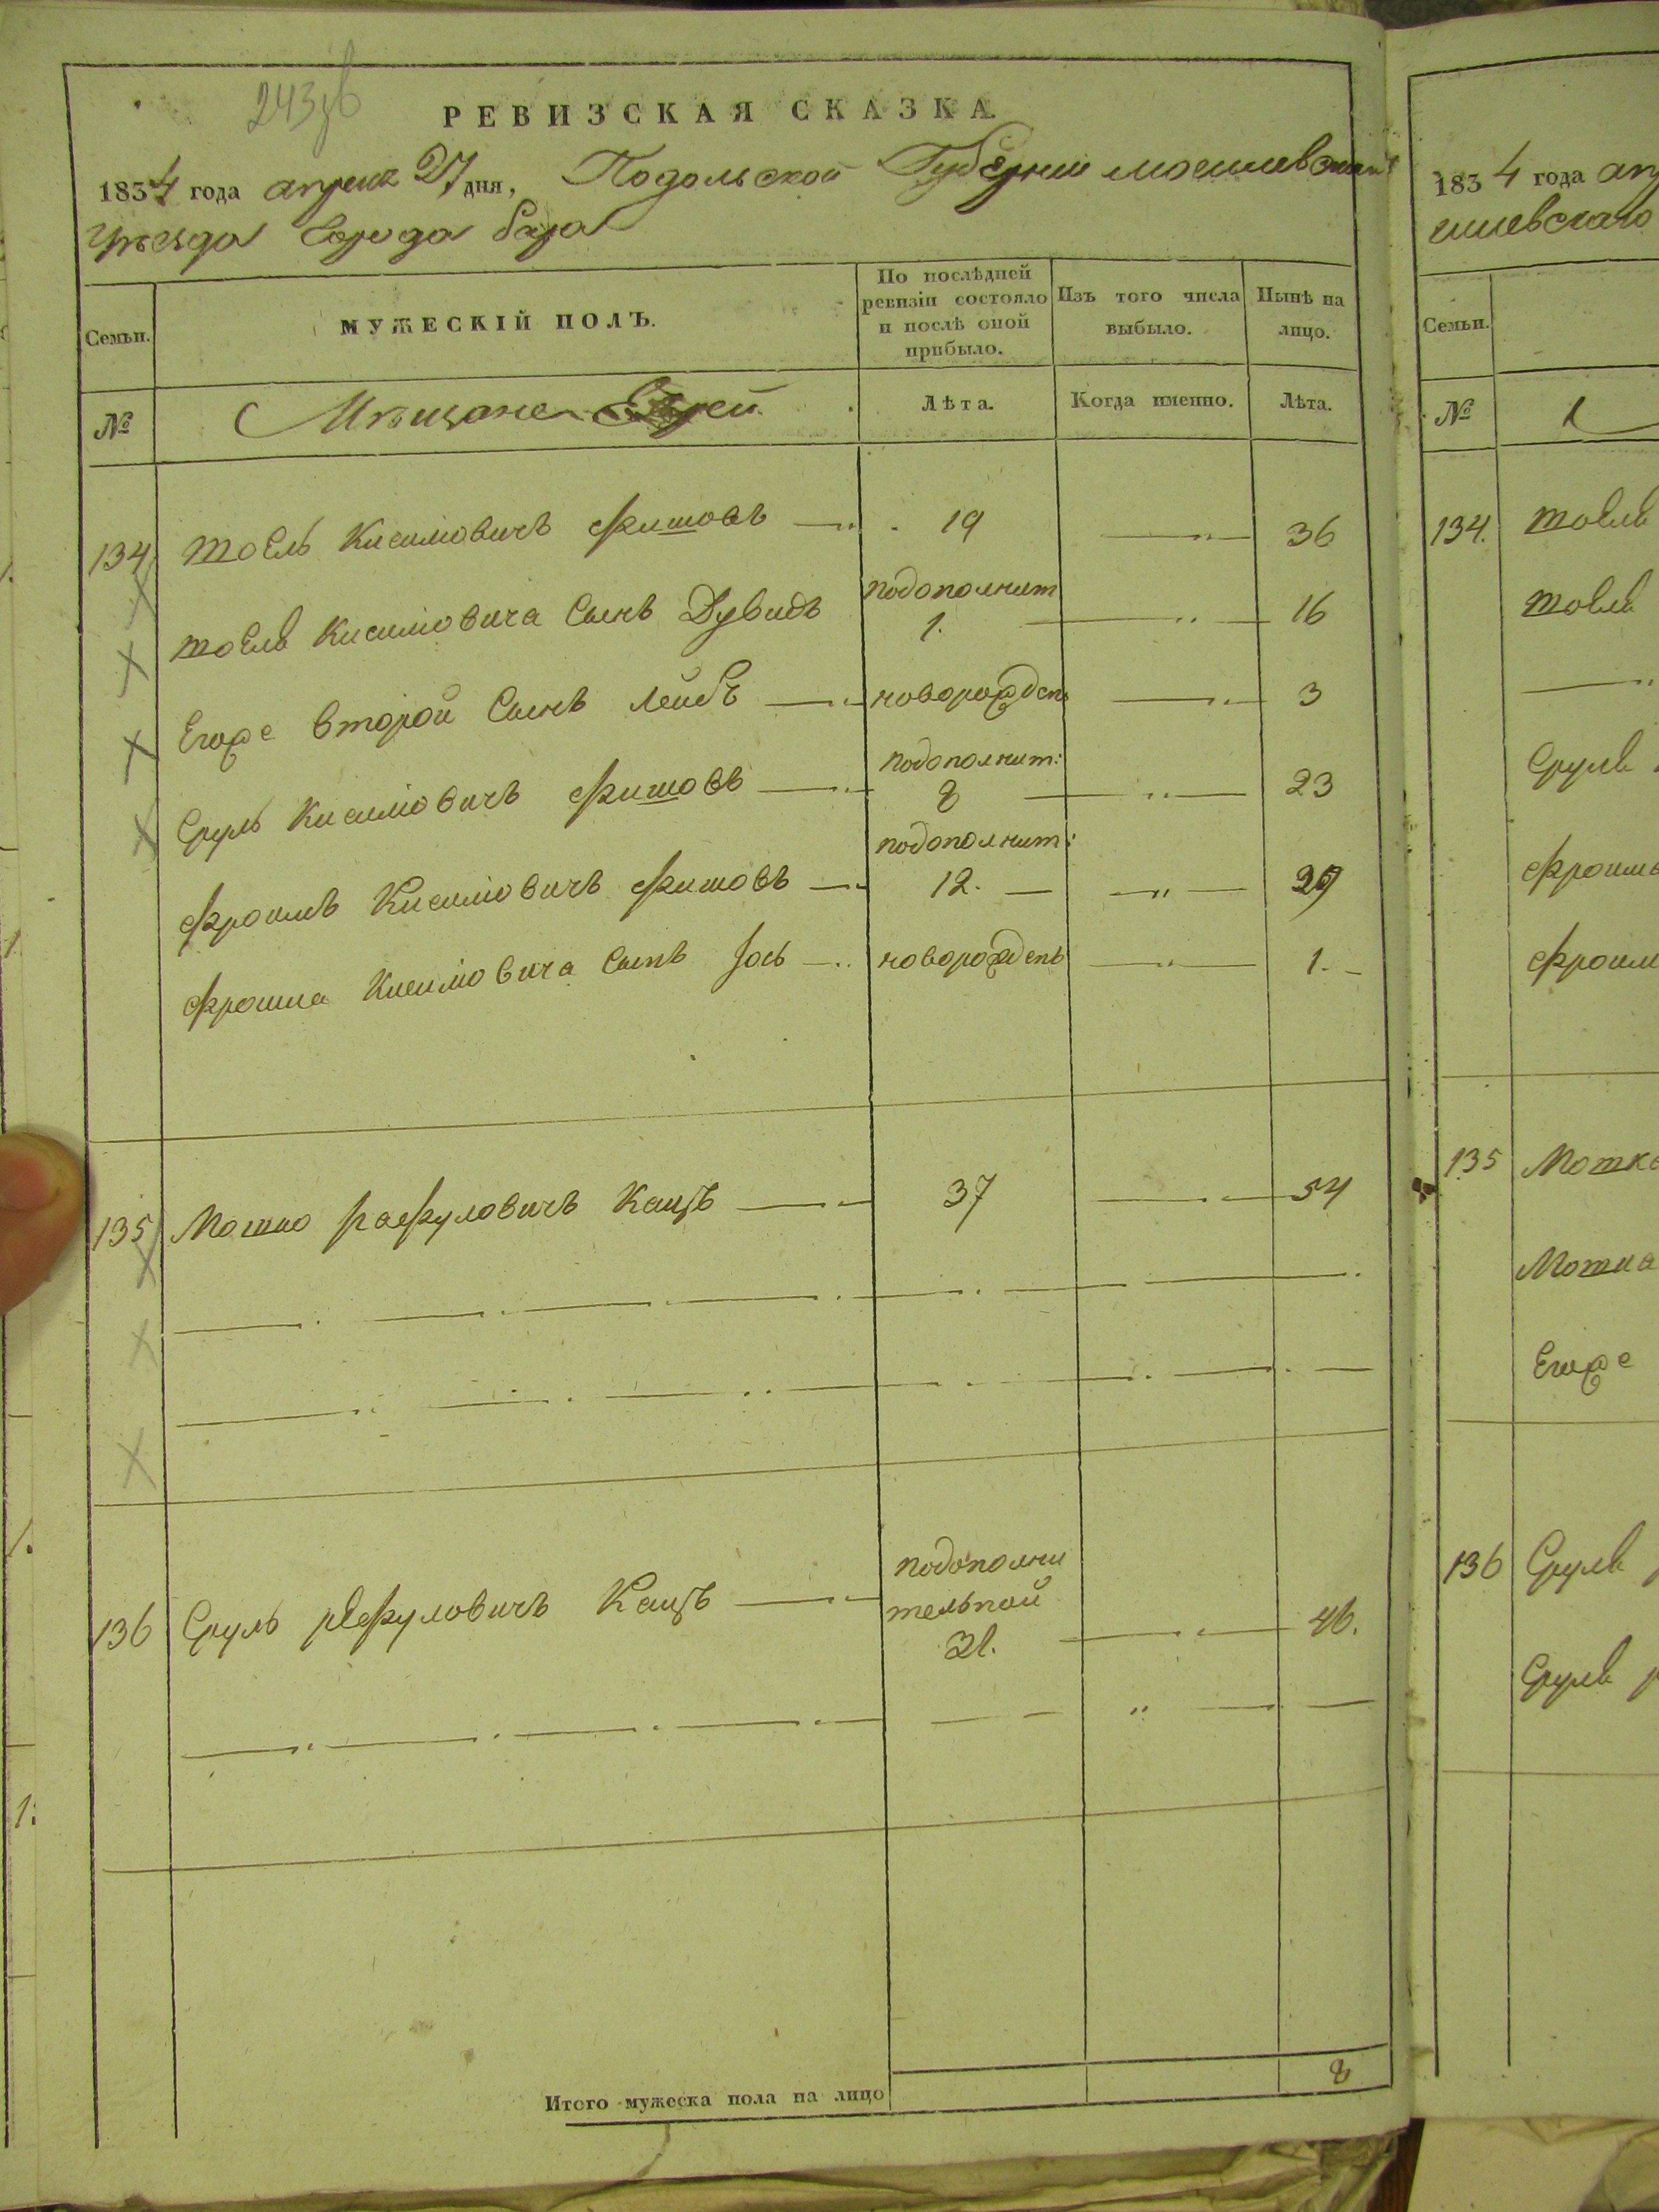 243об
РЕВИЗСКАЯ СКАЗКА.
1834 года апреля 27 дня, Подольской Губернии могилевского
уѣзда города бара
Семьи.
МУЖЕСКІЙ ПОЛЪ.
По послѣдней ревизіи состояло и послѣ оной прибыло.
Изъ того числа выбыло.
Нынѣ на лицо.
№
Мѣщане Евреи
Лѣта.
Когда именно.
Лѣта.
134 Тоель Кисилiовичъ Фишовъ 19 36
Тоеля Кисилiовича Сынъ Дувидъ подополнит 1. 16
Егоже второй Сынъ Лейбъ новорожденъ 3
Сруль Кисилiовичъ Фишовъ подополнит: 8 23
Фроимъ Кисилiовичъ Фишовъ подополнит: 12.
Фроима Кисилiовича Сынъ Iось новорожденъ 1.
135 Мошко рафуловичъ Кацъ 37 54
136 Сруль рефуловичъ Кацъ подополни
тельной
31. 46.
Итого мужеска пола на лицо 8
1834 года
Семьи.
№
134.
Егоже
135
Егоже
136